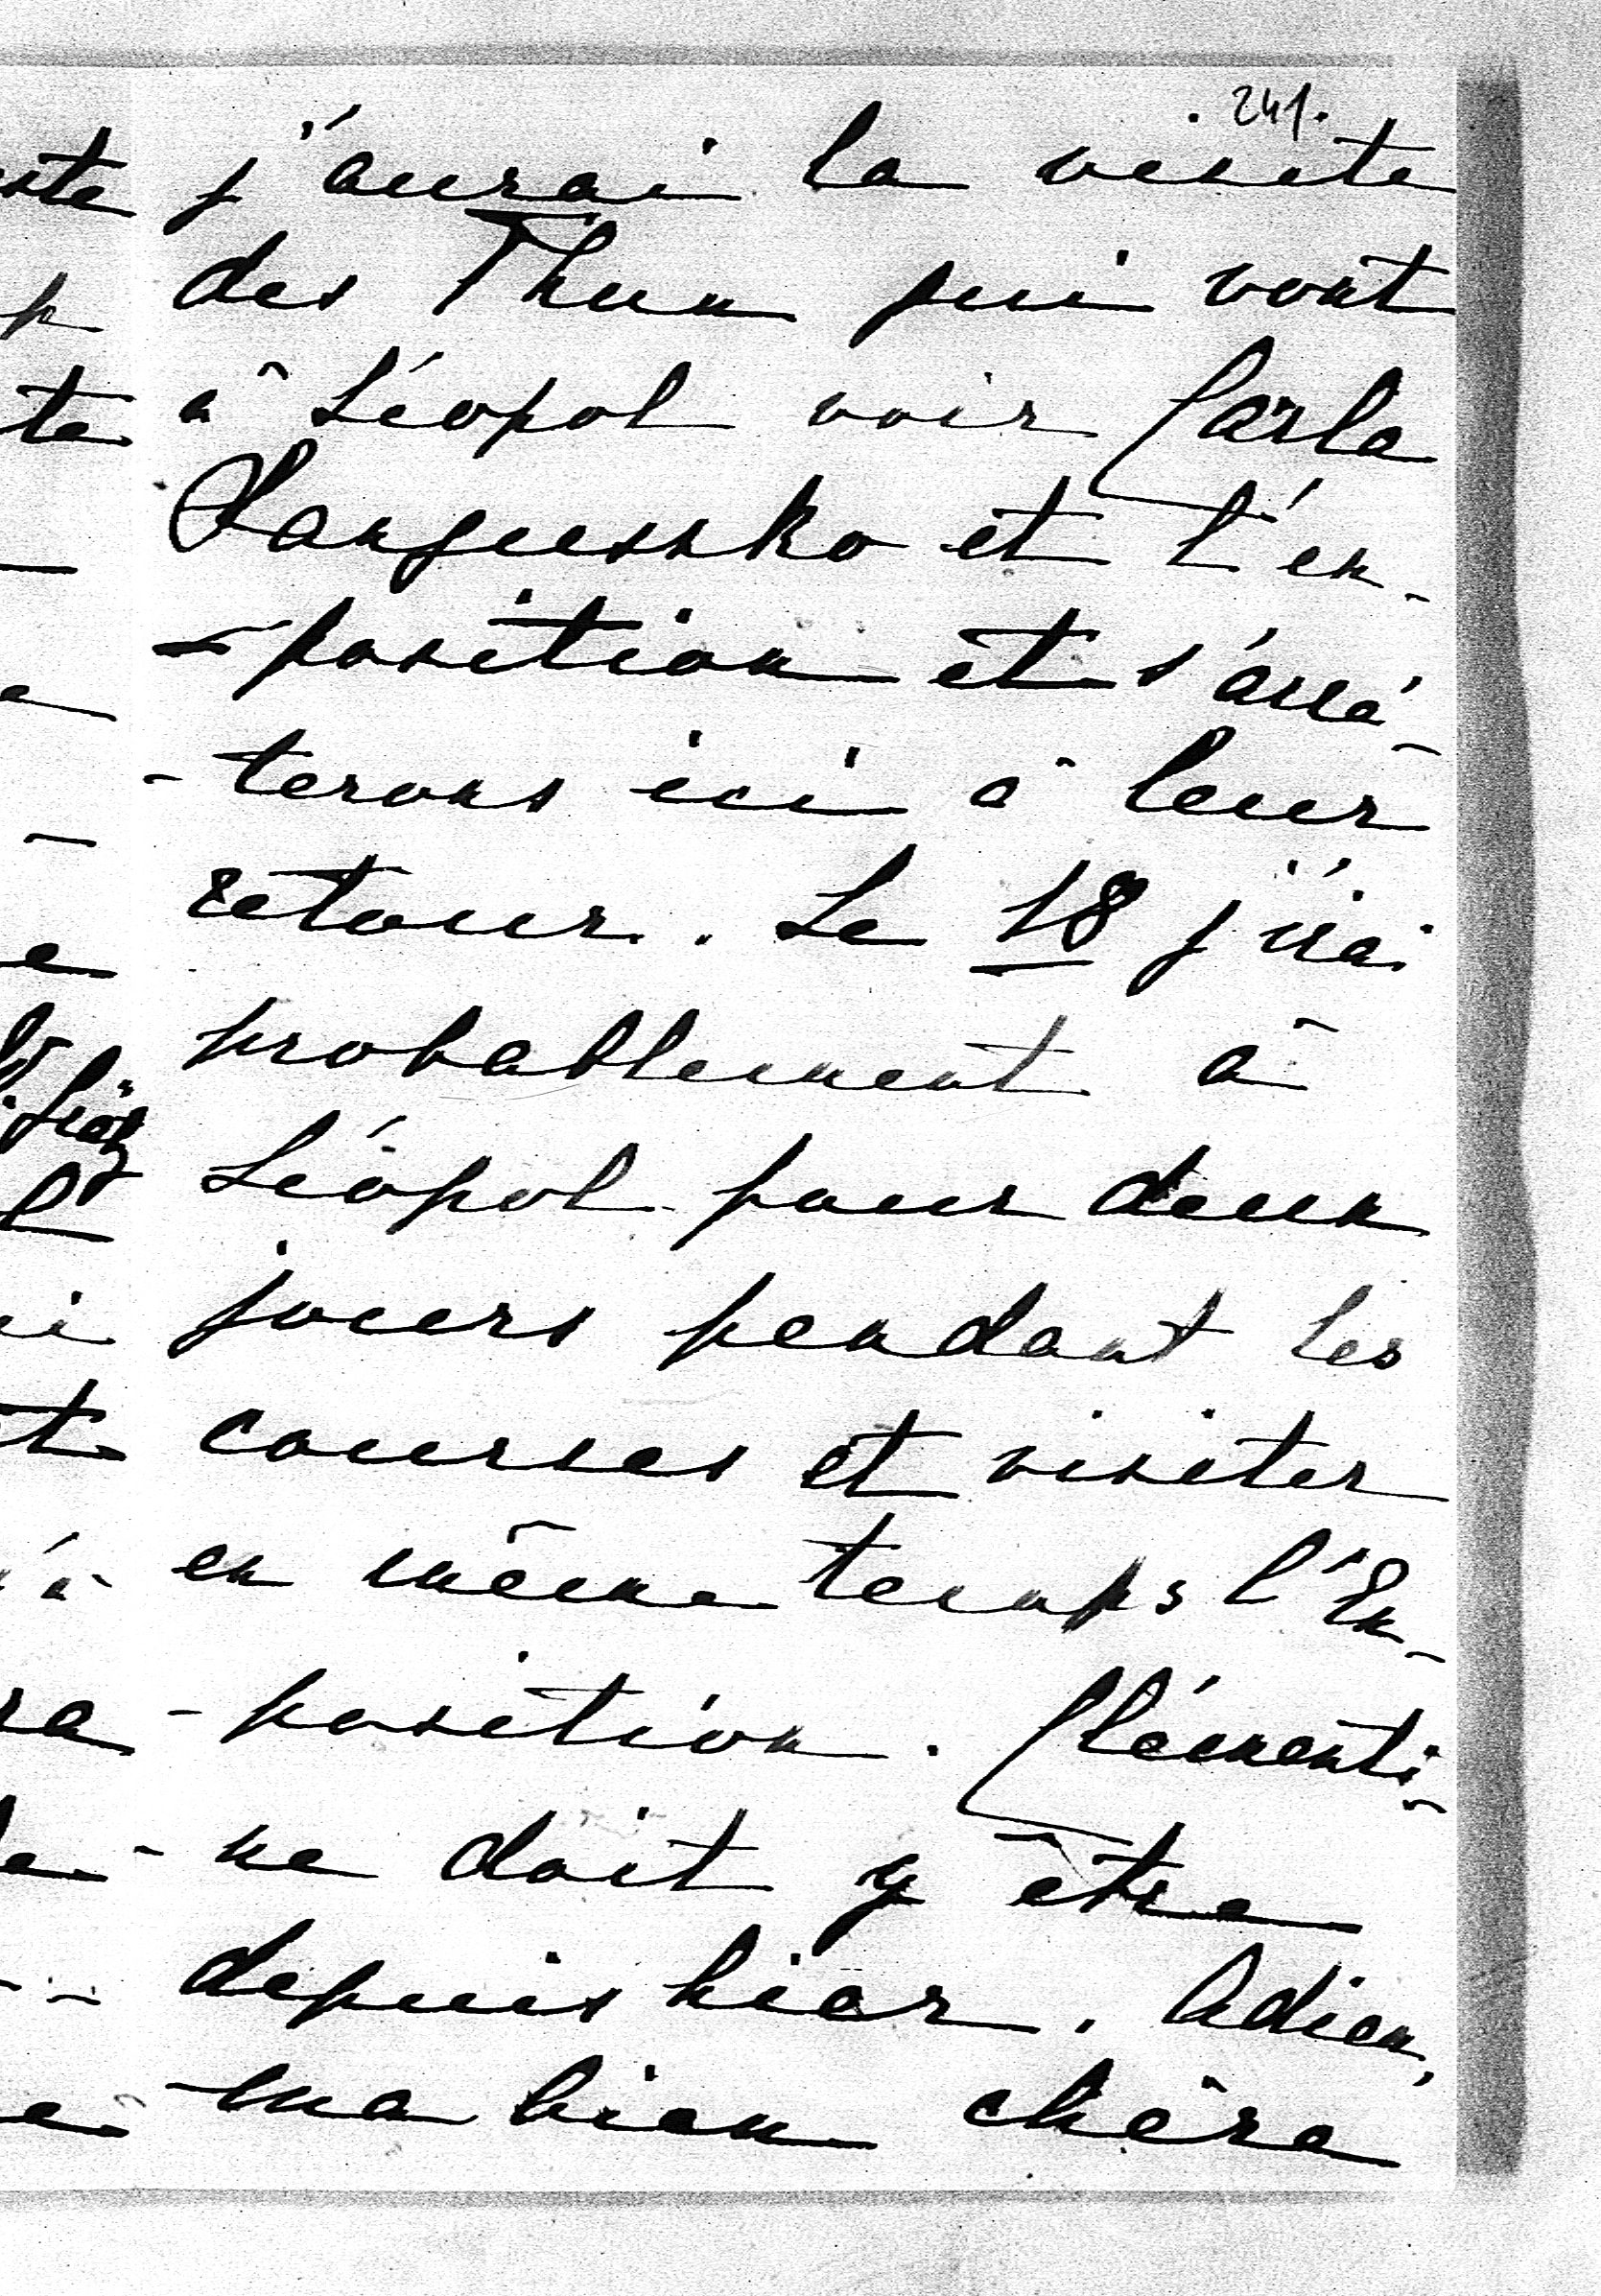 . 241.
j'aurai la visite
des Thun qui vont
à Léopol voir Carla
Sangussko et l'ex-
-position et s'arrê-
-terons ici à leur
retour. Le 18 j'irai
probablement à
Léopol pour deux
jours pendant les
courses et visiter
en même temps l'Ex-
-position. Clémenti-
-ne doit y être
depuis hier. Adieu,
ma bien chère